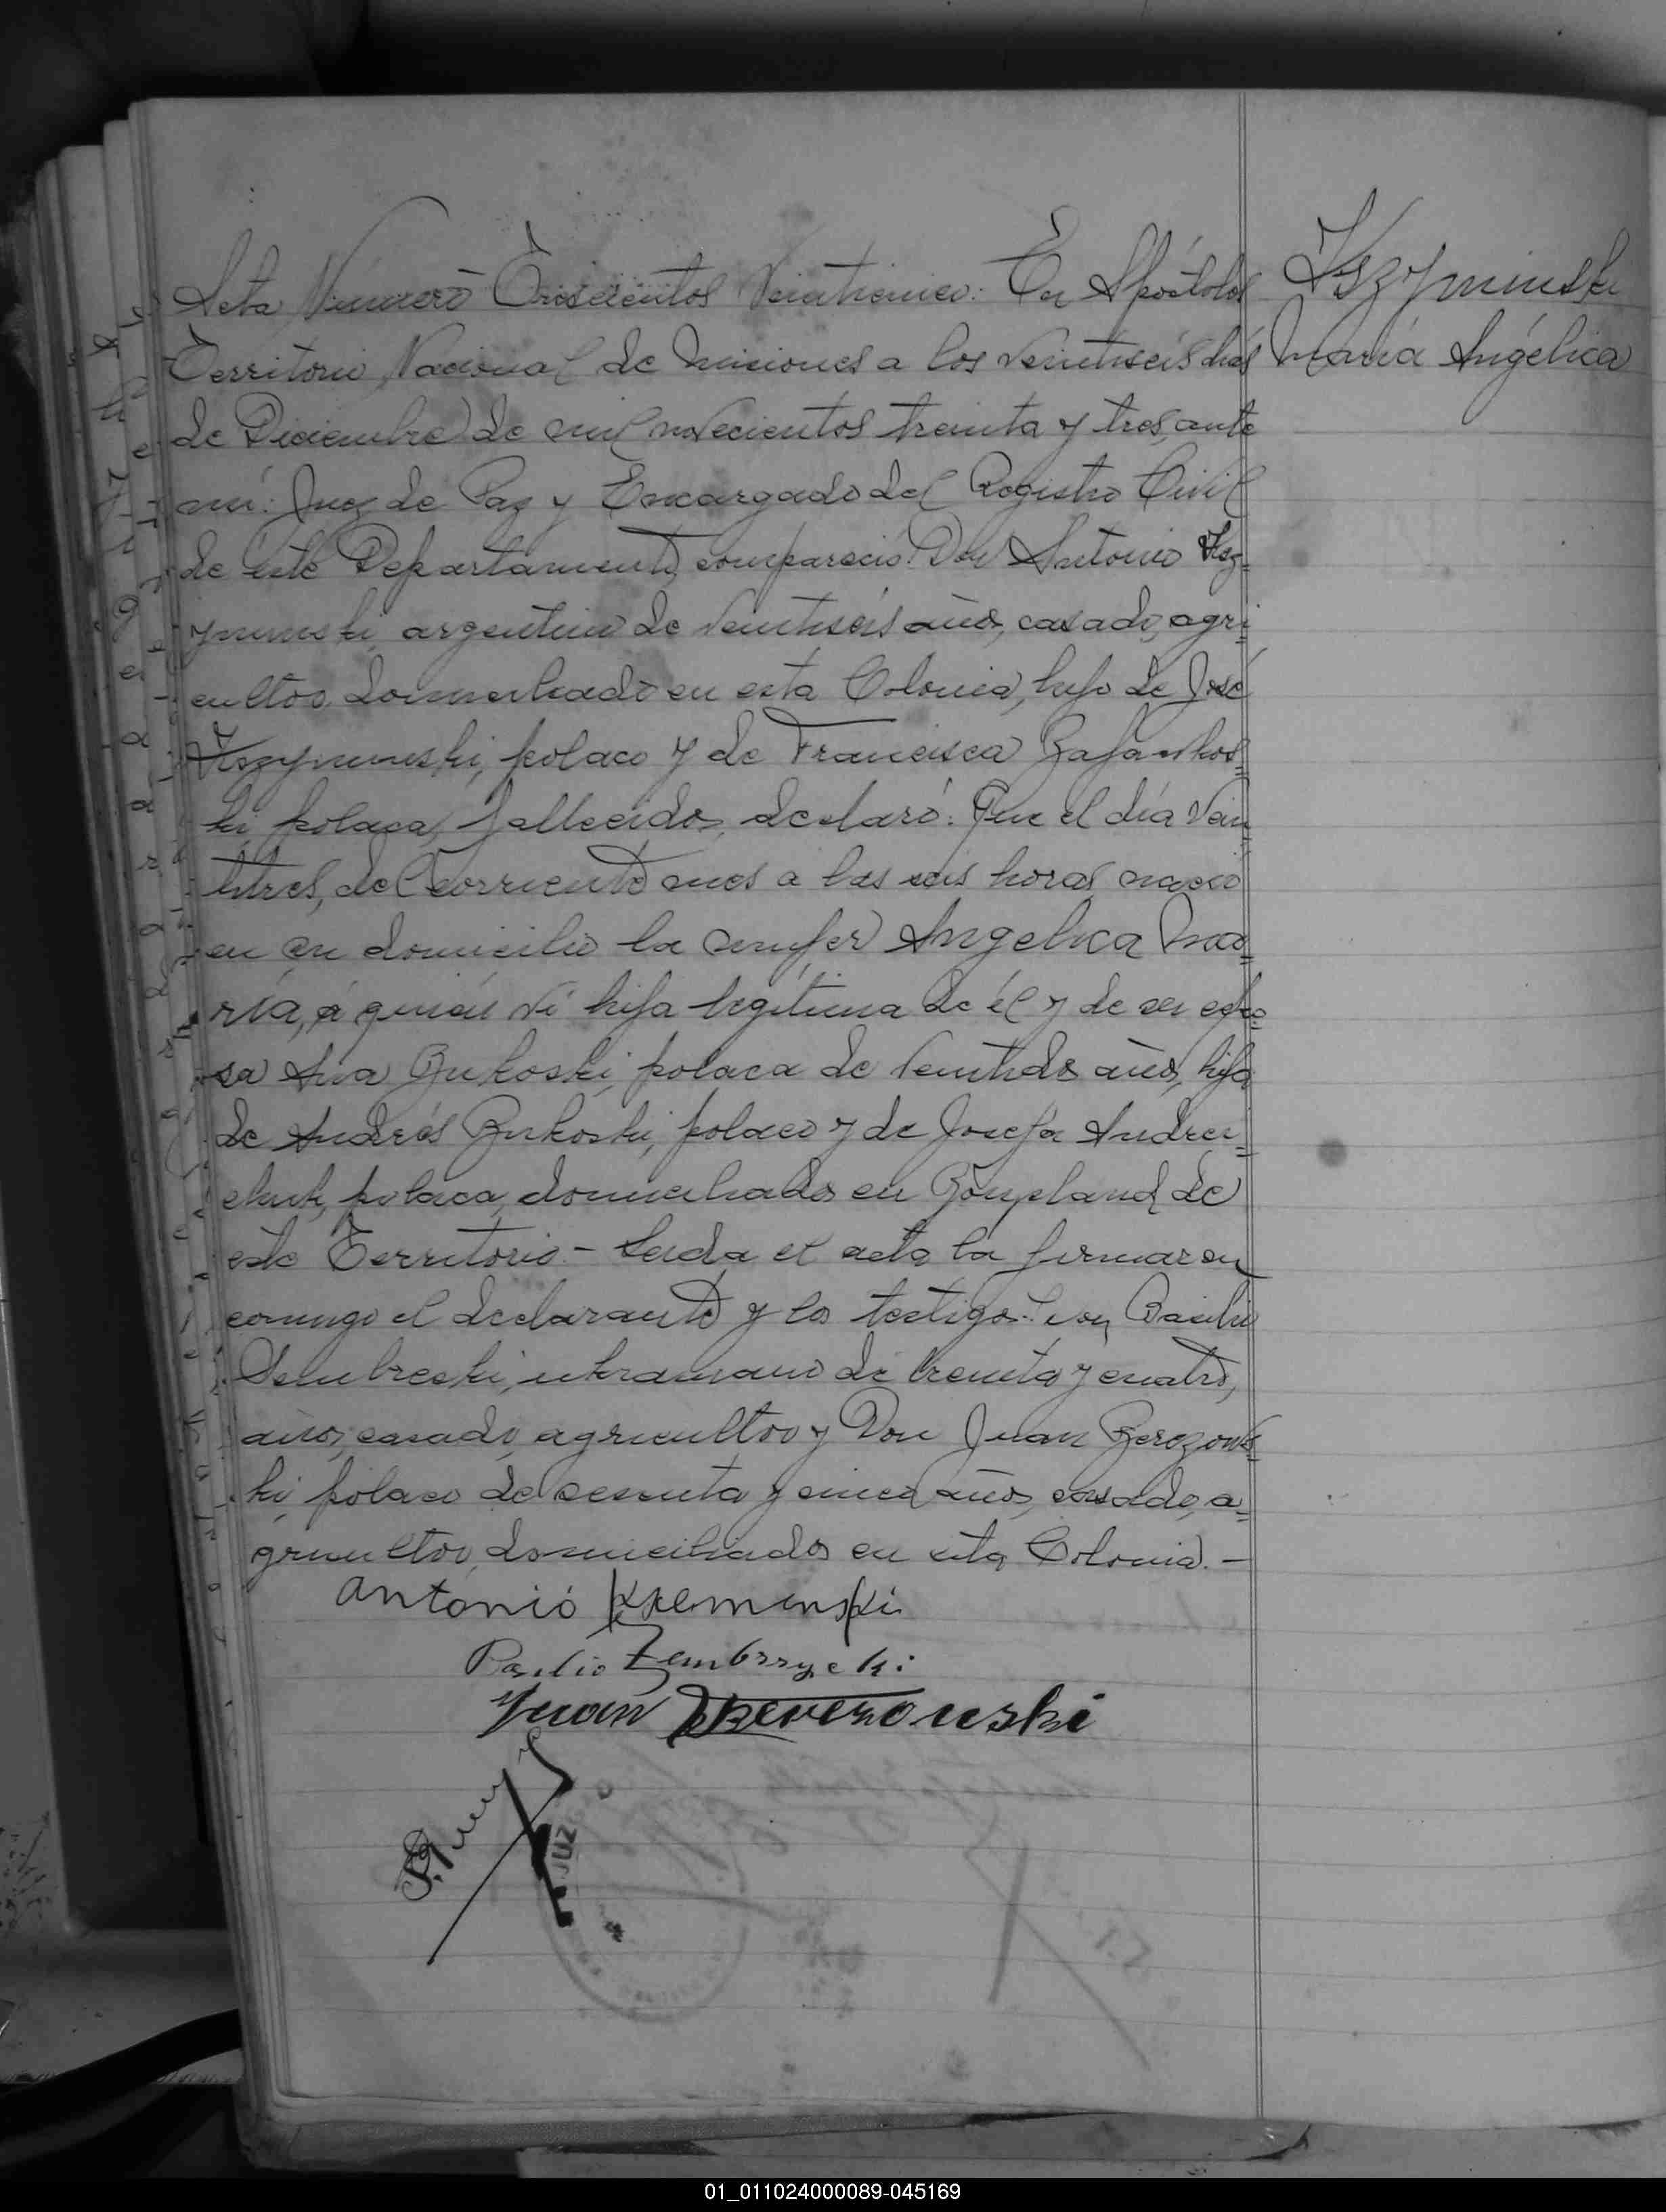 Acta Número Trescientos Veinticinco: En Apóstoles
Territorio Nacional de Misiones a los veintiseis días
de Diciembre de mil novecientos treinta y tres, ante
mí: Juez de Paz y Encargado del Registro Civil
de este Departamento, compareció: Don Antonio Ksz-
yminski, argentino de veintiseis años, casado, agri
cultor, domiciliado en esta Colonia, hijo de José
Kszyminski, polaco y de Francisca
ki, polaca, fallecidos, declaró: Que el día Vein
titres, del corriente mes a las seis horas nació
en su domicilio la mujer Angelica Ma-
ría, a quien vi hija legítima de él y de su espo-
sa Ana Bukoski, polaca de veintidos años, hija
de Andrés Bukoski, polaco y de Josefa Andrei-
chuk, polaca, domiciliados en Bonpland de
este Territorio - Leida el acta la firmaron
conmigo el declarante y los testigos: Don Basilio
Sembreski, ukraniano de treinta y cuatro,
años, casado, agricultor y Don Juan
ki, polaco de sesenta y cinco años, casado, a-
gricultor, domiciliados en esta Colonia. -
Antonió
Basilio Zembrzycki
Juan
JUZ
Kszyminski
María Angélica
01_011024000089-045169